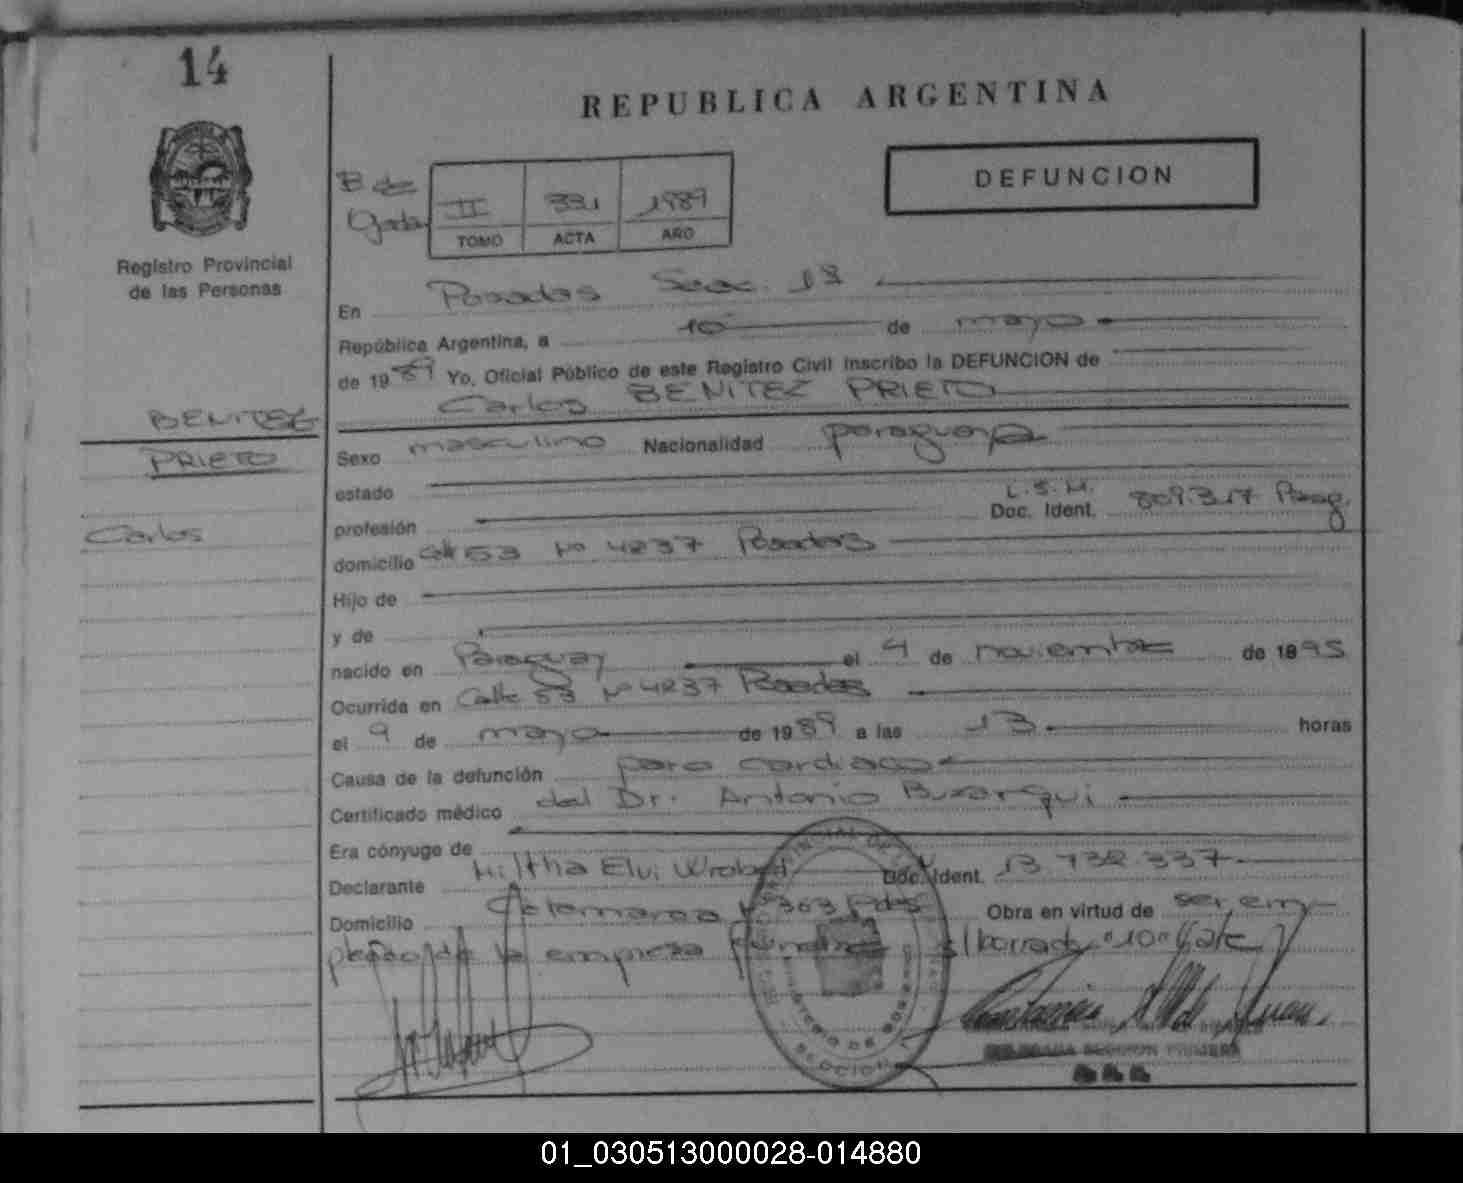 14
REPUBLICA ARGENTINA
DEFUNCION
B de
II 331 1989
TOMO ACTA AÑO
Registro Provincial
de las Personas
En Posadas Secc. 1ª
República Argentina, a 10 de mayo
de 1989 Yo, Oficial Público de este Registro Civil inscribo la DEFUNCION de
Carlos BENITEZ PRIETO
BENITEZ
PRIETO
Carlos
Sexo masculino Nacionalidad paraguaya
estado
profesión Doc. Ident. 809.317 Parag.
domicilio Calle 53 Nº 4237 Posadas
Hijo de
y de
nacido en Paraguay el 4 de noviembre de 1895
Ocurrida en Calle 53 Nº 4237 Posadas
el 9 de mayo de 1989 a las 13 horas
Causa de la defunción paro cardiaco
Certificado médico del Dr. Antonio
Era cónyuge de
Declarante Elvi Doc. Ident. 13 732.337
Domicilio Catamarca Nº 363 Pdas Obra en virtud de ser em-
pleado de la empresa s/borrado "10" Vale
DELEGADA SECCION PRIMERA
01_030513000028-014880